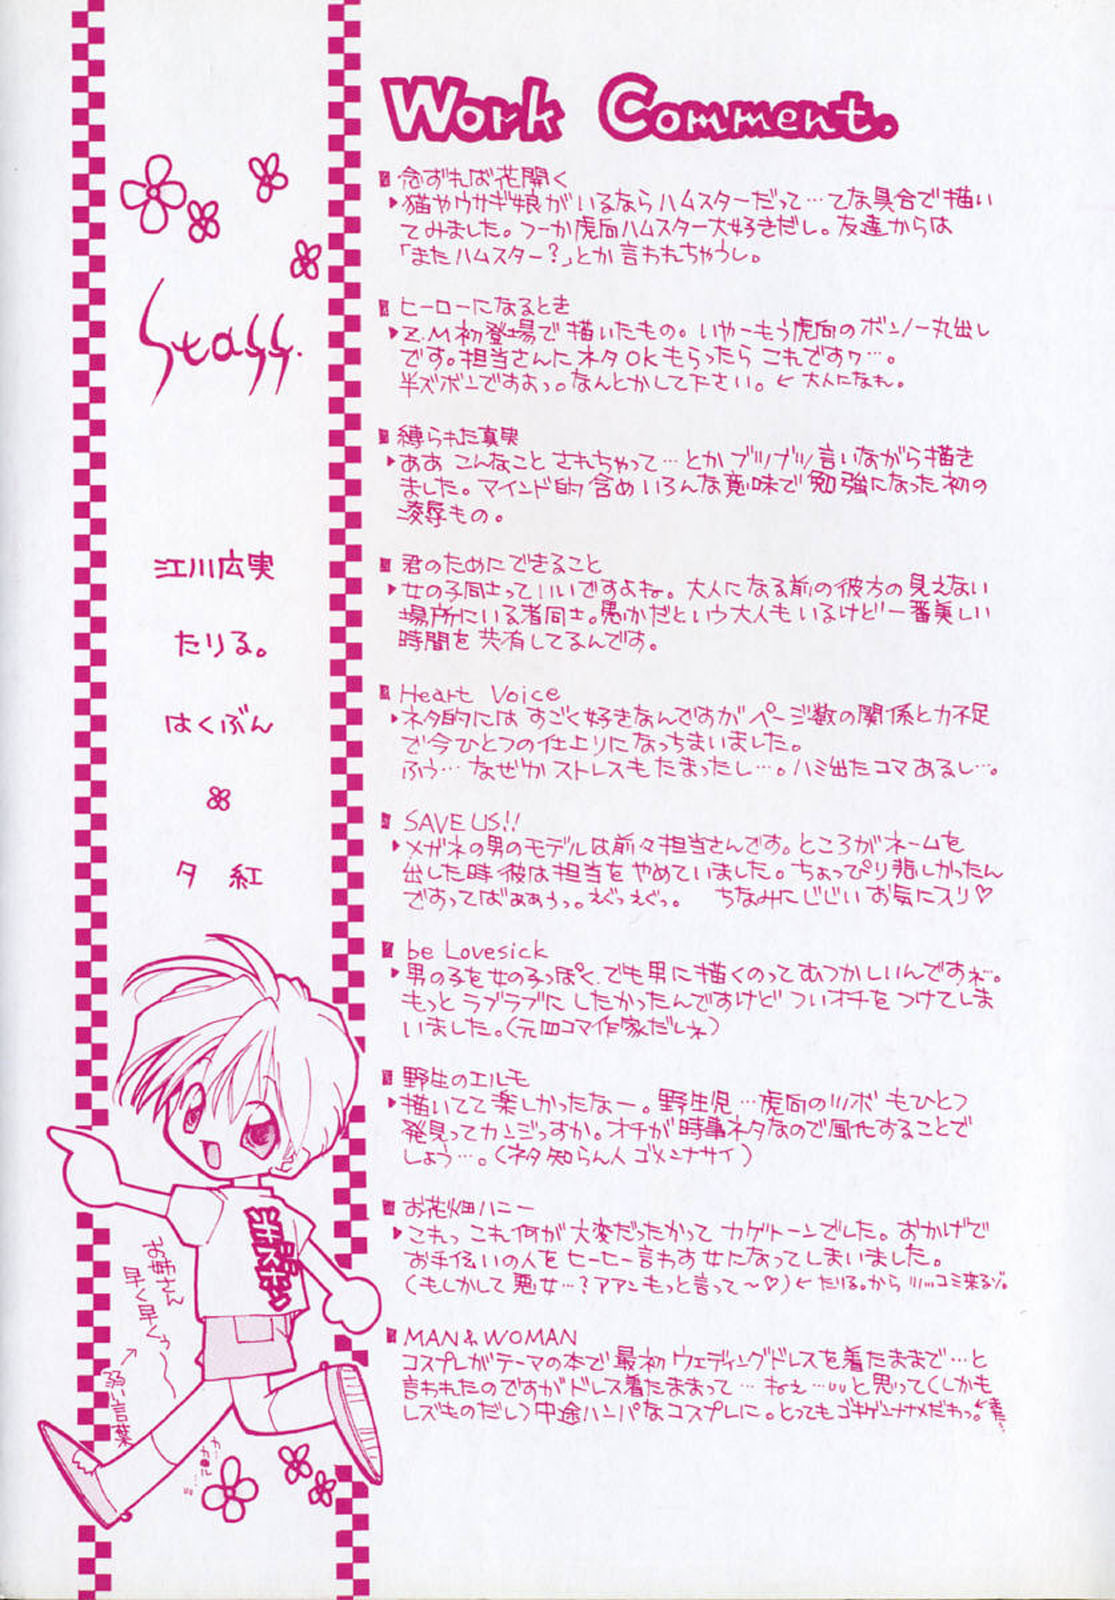 Work Comment.
念ずれば花開く
猫やウサギ娘がいるならハムスターだって…てな具合で描い
てみました。つーか虎向ハムスター大好きだし。友達からは
「またハムスター?」とか言われちゃうし。
ヒーローになるとき
Z.M初登場で描いたもの。いやーもう虎向のボンノー丸出し
です。担当さんにネタOKもらったらこれですヮ…。
半ズボンですよっ。なんとかして下さい。←大人になれ。
縛られた真実
ああ こんなこと されちゃって…とか ブツブツ言いながら描き
ました。マインド的含めいろんな意味で勉強になった初の
凌辱もの。
君のためにできること
女の子同士っていいですよね。大人になる前の彼方の見えない
場所にいる者同士。愚かだという大人もいるけど一番美しい
時間を共有してるんです。
Heart Voice
ネタ的にはすごく好きなんですがページ数の関係と力不足
で今ひとつの仕上リになっちまいました。
ふぅ…なぜかストレスもたまったし…。ハミ出たコマあるし…。
SAVE US!!
メガネの男のモデルは前々担当さんです。ところがネームを
出した時彼は担当をやめていました。ちょっぴり悲しかったん
ですってばぁぁぅっ。えぐっえぐっ。 ちなみにじじいお気にスリ♡
be Lovesick
男の子を女の子っぽく、でも男に描くのってむつかしいんですね。
もっとラブラブにしたかったんですけどついオチをつけてしま
いました。(元四コマ作家だしネ)
野生のエルモ
描いてて楽しかったなー。野生児…虎向のツボもひとつ
発見ってカンジっすか。オチが時事ネタなので風化することで
しょう…。(ネタ知らん人ゴメンナサイ)
お花畑ハニー
これっ これ何が大変だったかって カゲトーンでした。おかげで
お手伝いの人をヒーヒー言わす女になってしまいました。
(もしかして悪女…?アアンもっと言って〜♡)←たりる。からツッコミ来るゾ。
MAN&WOMAN
コスプレがテーマの本で最初ウェディングドレスを着たままで…と
言われたのですがドレス着たままって…ねぇ…と思って(しかも
レズものだし)中途ハンパなコスプレに。とってもゴキゲンナナメだわっ。
Staff.
江川広実
たりる。
はくぶん
夕 紅
半ズボン
お姉さん
早く早くぅ〜
弱い言葉